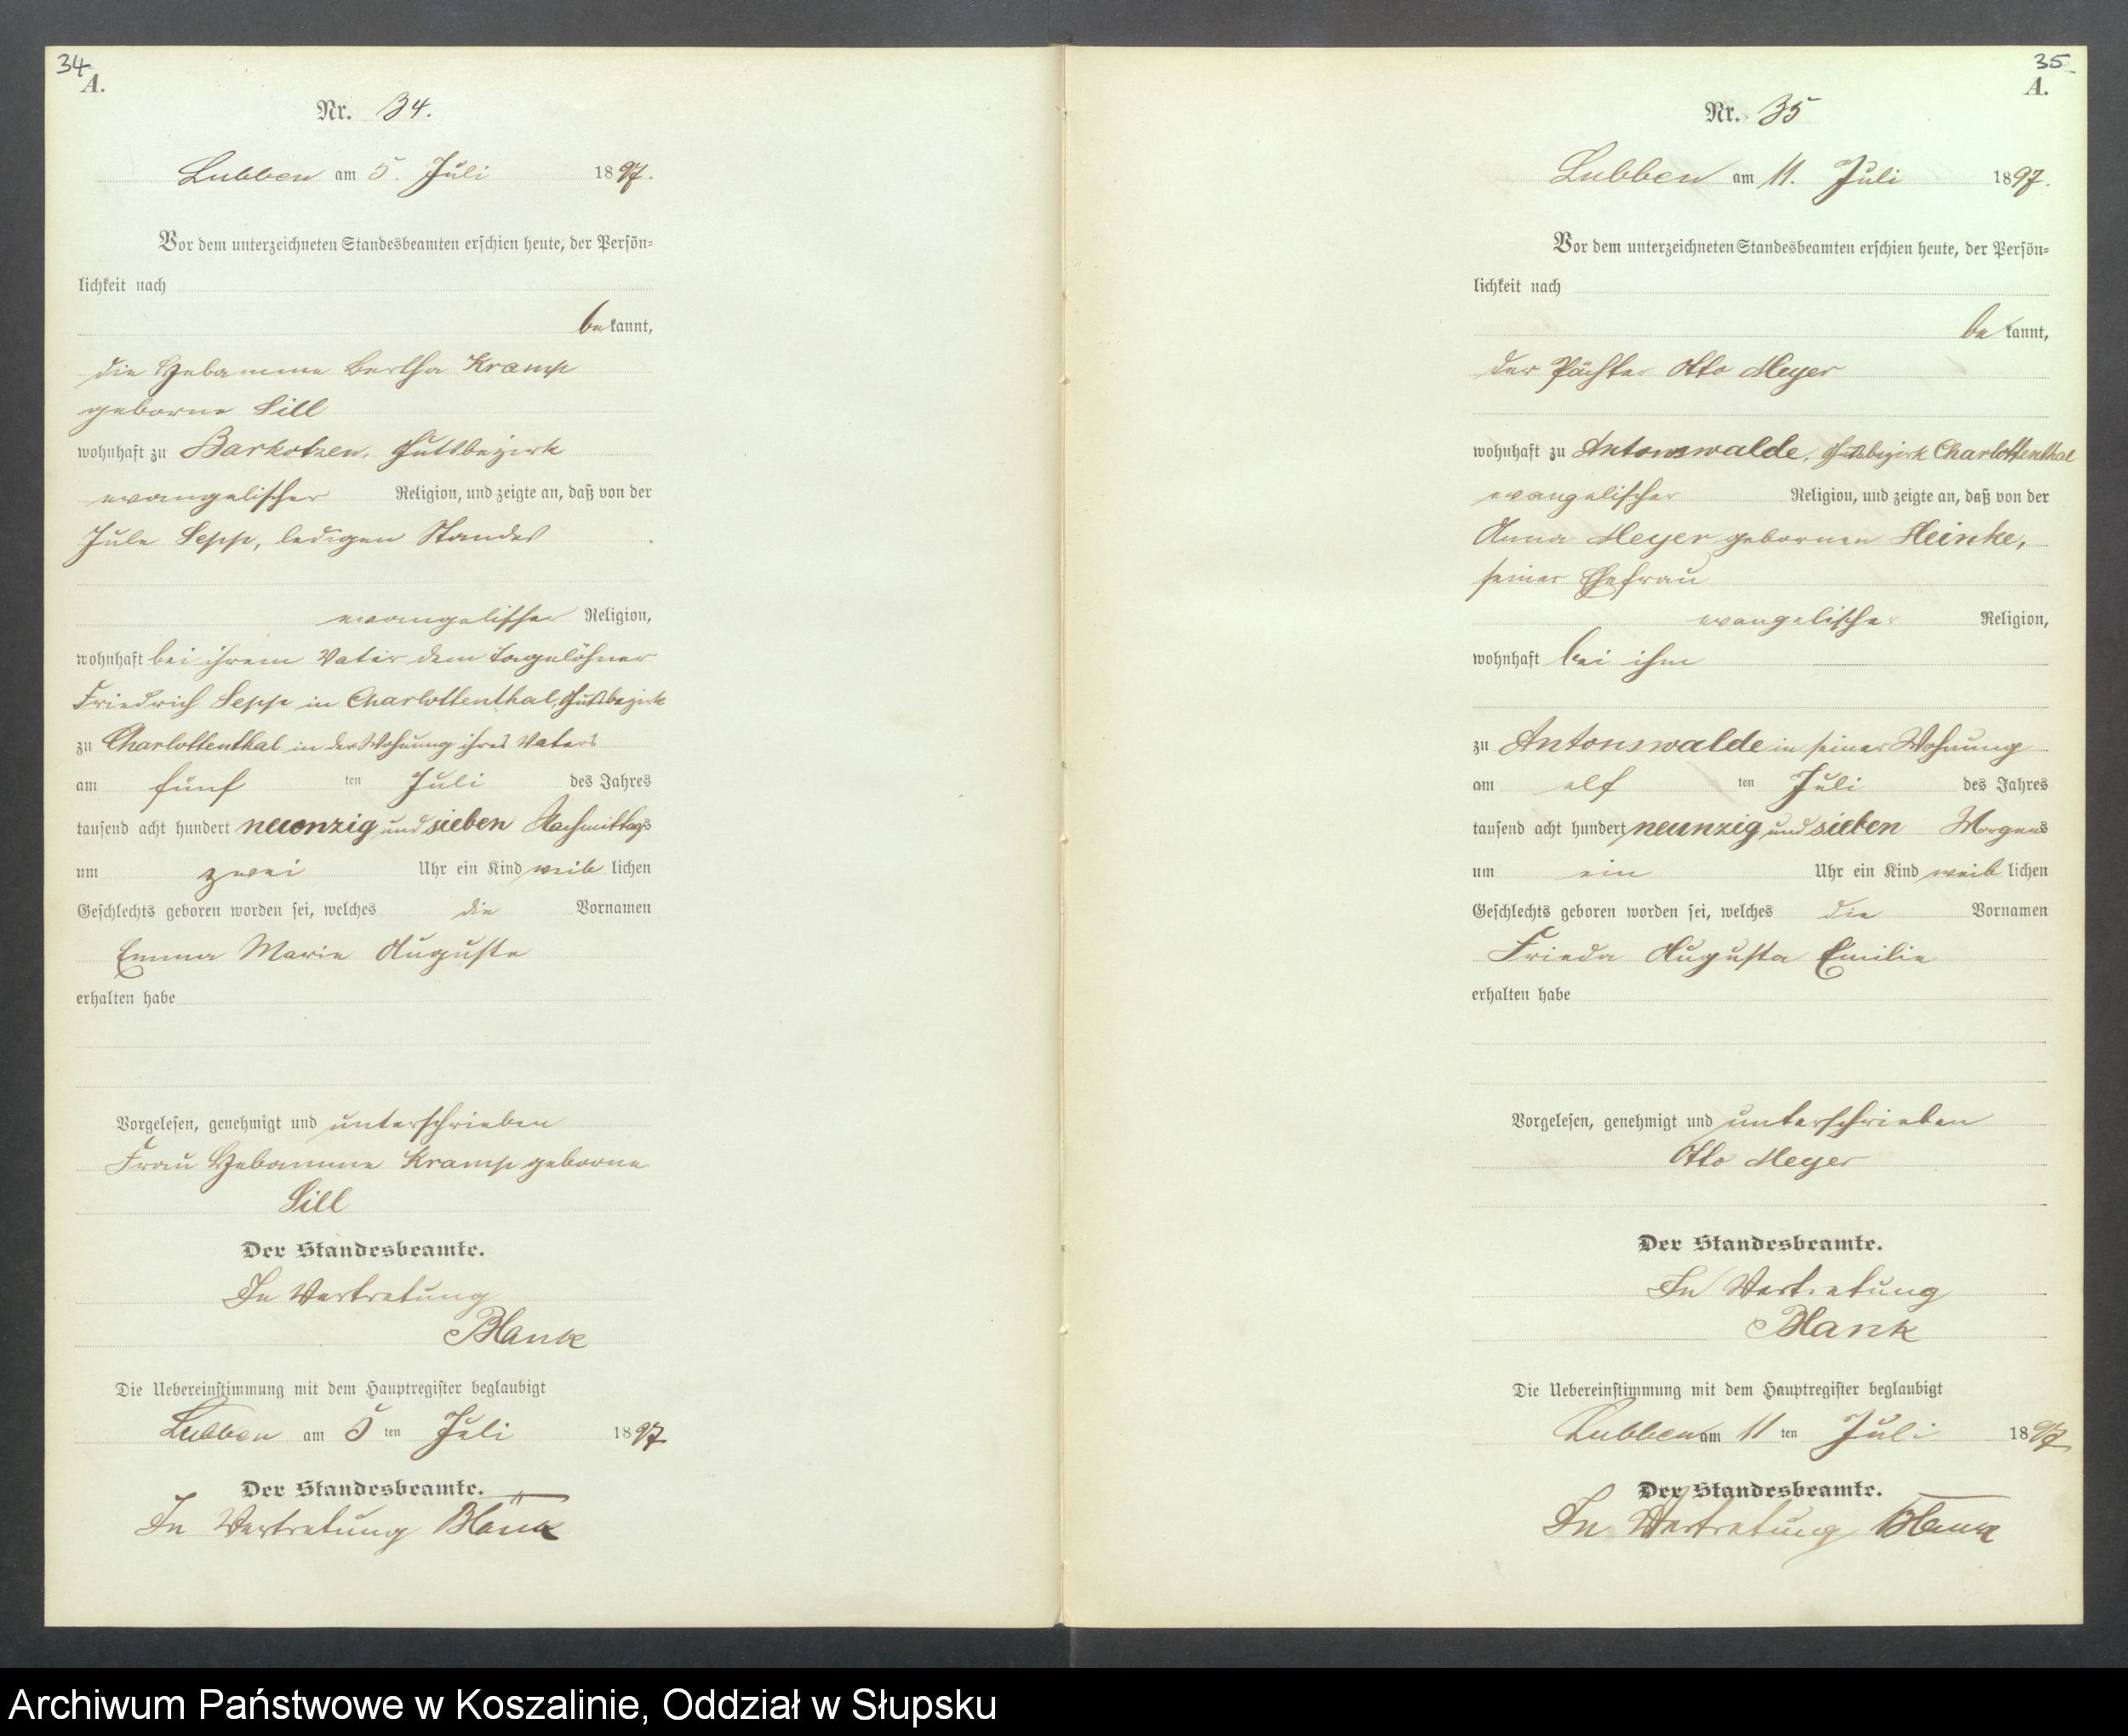 34
A.
Nr. 34.
Lubben am 5. Juli 1897.
Vor dem unterzeichneten Standesbeamten erschien heute, der Persön=
lichkeit nach
bekannt,
die Hebamme Bertha Kramp
geborne Sill
wohnhaft zu Barkotzen, Gutsbezirk
evangelischer Religion, und zeigte an, daß von der
Jule Sepp, ledigen Standes
evangelischer Religion,
wohnhaft bei ihrem Vater dem Tagelöhner
Friedrich Sepp in Charlottenthal, Gutsbezirk
zu Charlottenthal in der Wohnung ihres Vaters
am fünf ten Juli des Jahres
tausend acht hundert neunzig und sieben Nachmittags
um zwei Uhr ein Kind weib lichen
Geschlechts geboren worden sei, welches die Vornamen
Emma Marie Auguste
erhalten habe
Vorgelesen, genehmigt und unterschrieben
Frau Hebamme Kramp geborne
Sill
Der Standesbeamte.
In Vertretung
Blank
Die Uebereinstimmung mit dem Hauptregister beglaubigt
Lubben am 5 ten Juli 1897
Der Standesbeamte.
In Vertretung Blank
35
A.
Nr. 35
Lubben am 11. Juli 1897.
Vor dem unterzeichneten Standesbeamten erschien heute, der Persön=
lichkeit nach
be kannt,
der Pächter Otto Meyer
wohnhaft zu Antonswalde, Gutsbezirk Charlottenthal
evangelischer Religion, und zeigte an, daß von der
Anna Meyer gebornen Heinke,
seiner Ehefrau
evangelischer Religion,
wohnhaft bei ihm
zu Antonswalde in seiner Wohnung
am elf ten Juli des Jahres
tausend acht hundert neunzig und sieben Morgens
um ein Uhr ein Kind weib lichen
Geschlechts geboren worden sei, welches die Vornamen
Frieda Augusta Emilie
erhalten habe
Vorgelesen, genehmigt und unterschrieben
Otto Meyer
Der Standesbeamte.
In Vertretung
Blank
Die Uebereinstimmung mit dem Hauptregister beglaubigt
Lubben am 11 ten Juli 1897
Der Standesbeamte.
In Vertretung Blank
Archiwum Państwowe w Koszalinie, Oddział w Słupsku